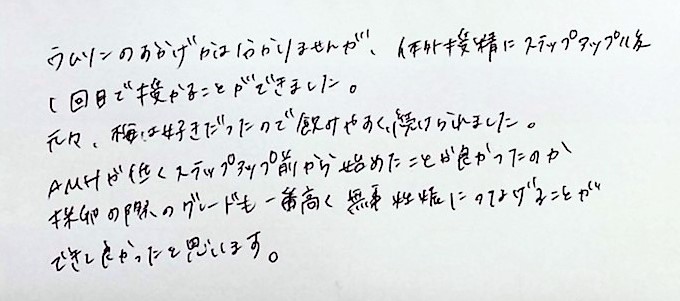 ウムリンのおかげかは分かりませんが、体外授精にステップアップし後
1回目で授かることができました。
元々、梅は好きだったので飲みやすく、続けられました。
AMHが低くステップアップ前から始めたことが良かったのか
採卵の際のグレードも一番高く無事妊娠につなげることが
でき良かったと思います。